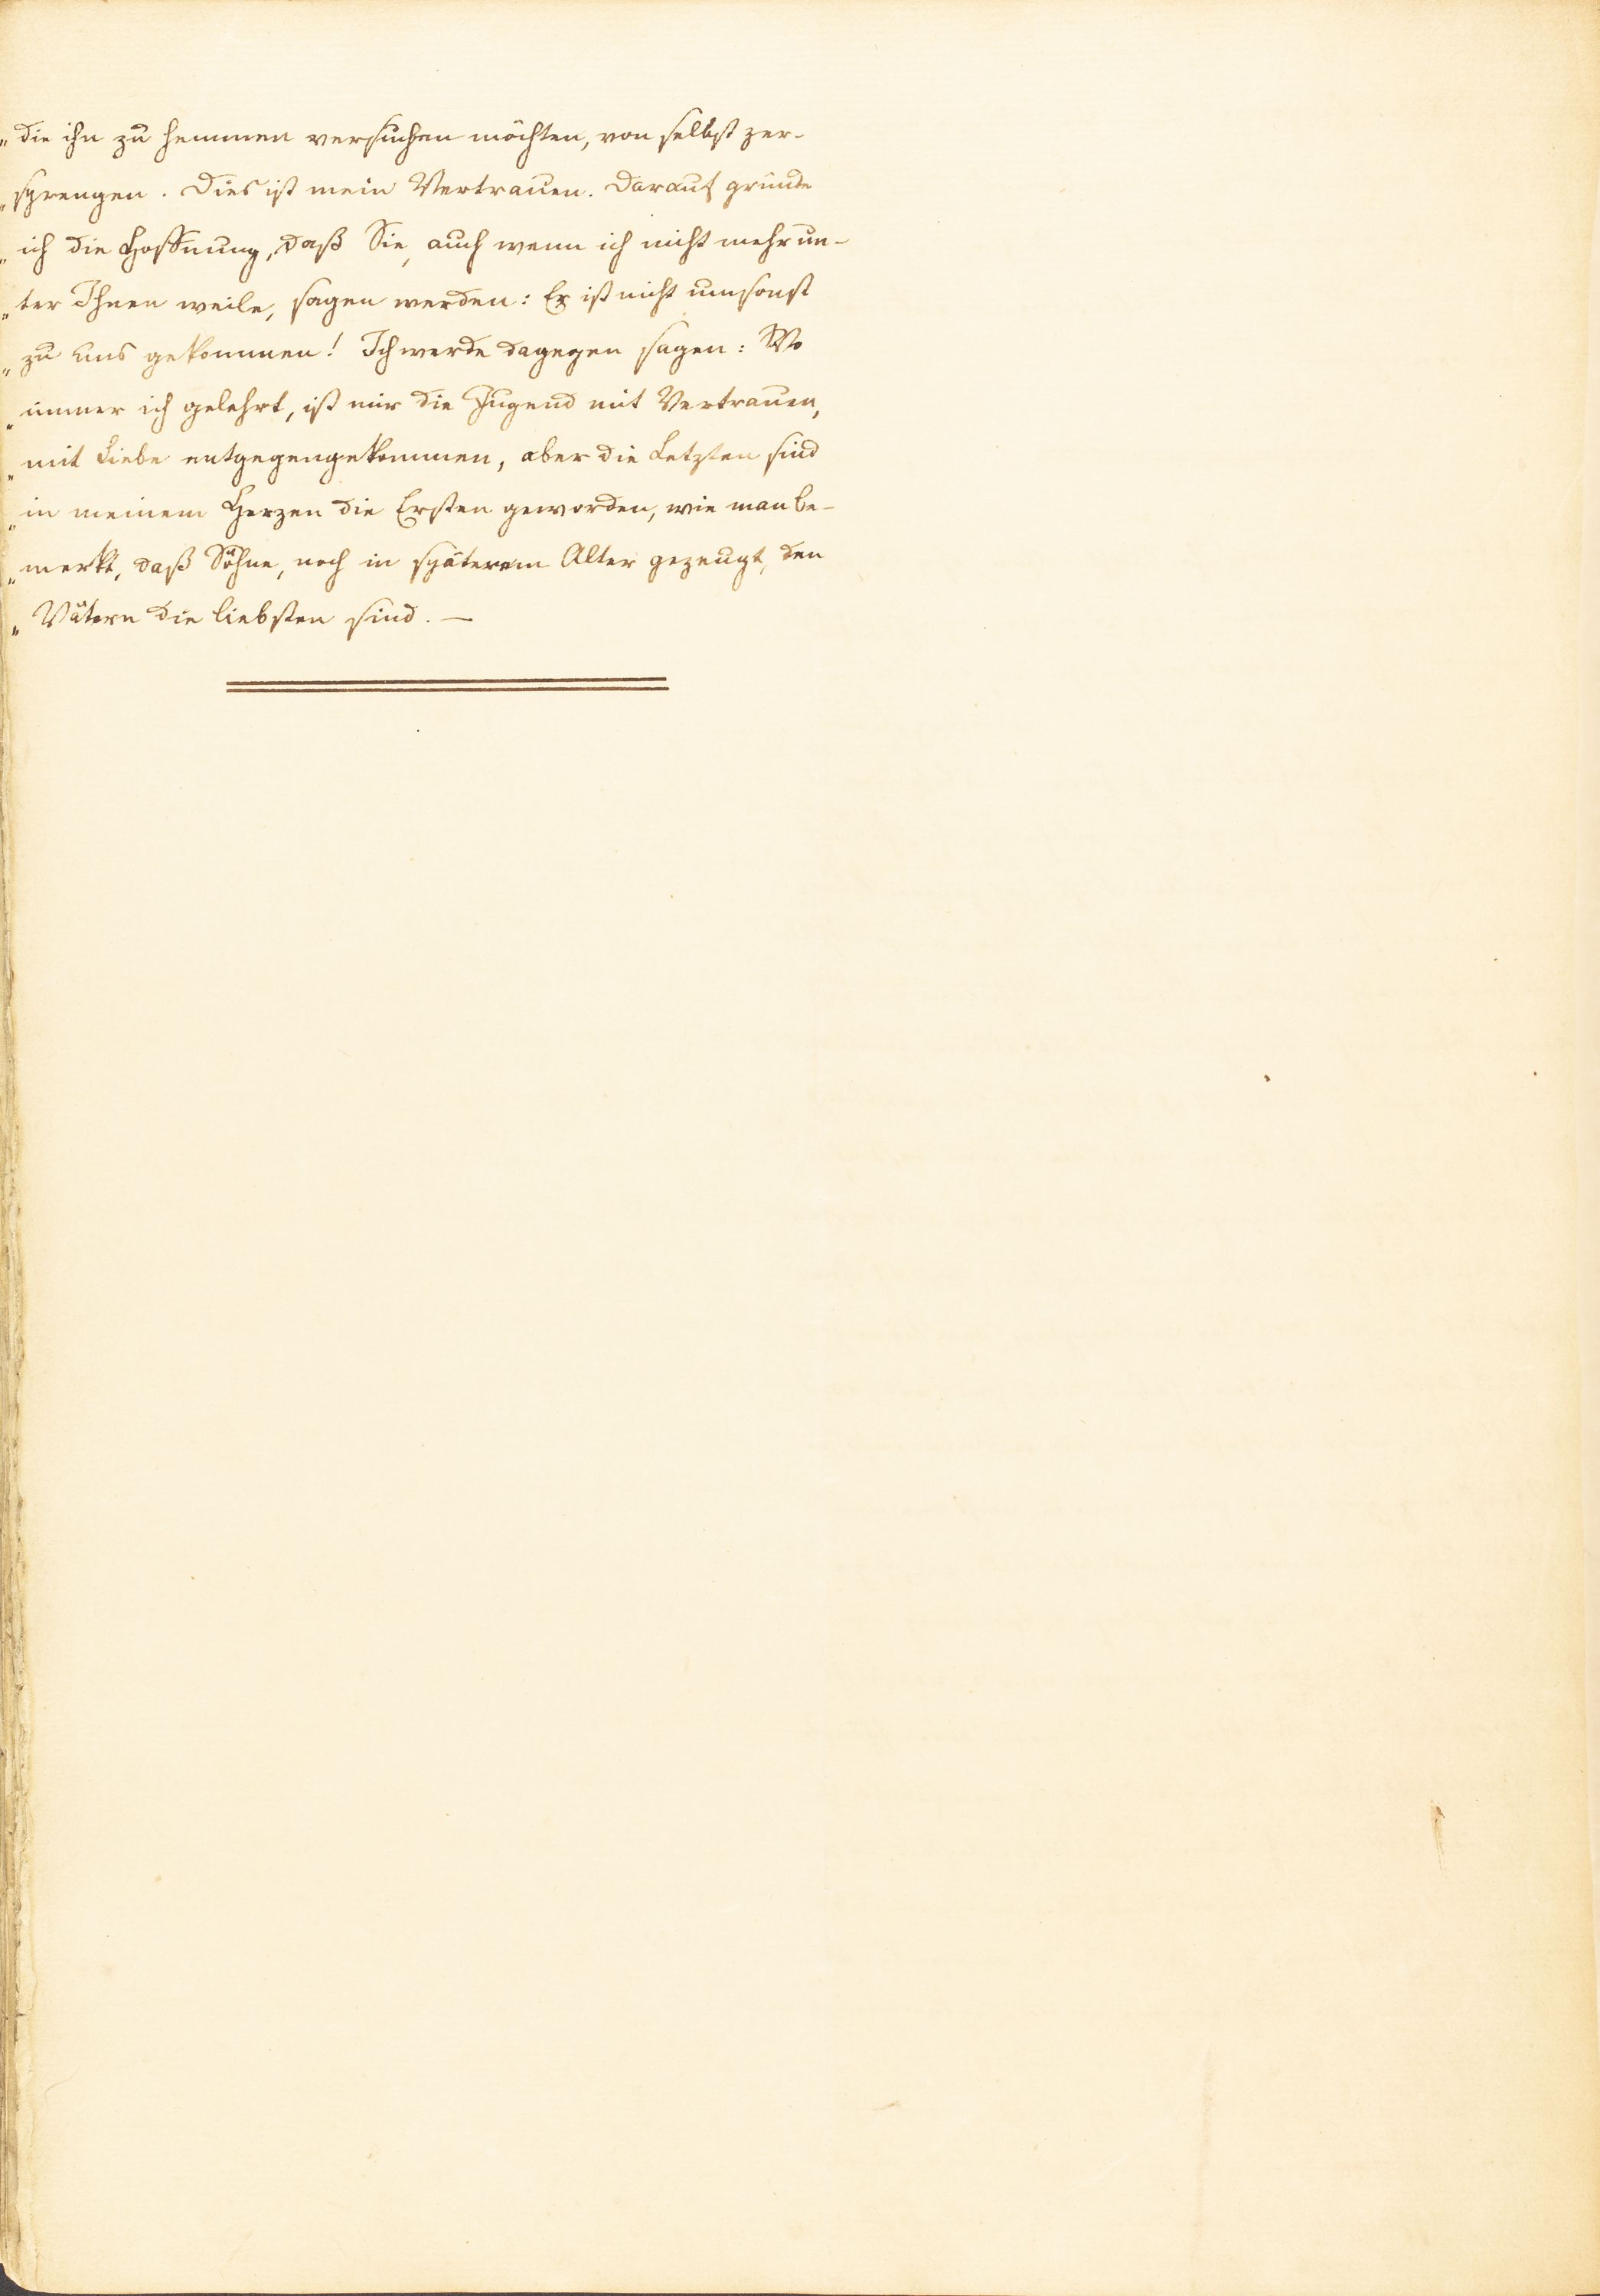 „die ihn zu hemmen versuchen möchten, von selbst zer-
„sprengen. Dies ist mein Vertrauen. Darauf gründe
„ich die Hoffnung, daß Sie, auch wenn ich nicht mehr un-
„ter Ihnen weile, sagen werden: Er ist nicht umsonst
„zu uns gekommen! Ich werde dagegen sagen: Wo
„immer ich gelehrt, ist mir die Jugend mit Vertrauen,
„mit Liebe entgegengekommen, aber die Letzten sind
„in meinem Herzen die Ersten geworden, wie man be-
„merkt, daß Söhne, noch in späterem Alter gezeugt, den
„Vätern die liebsten sind. —